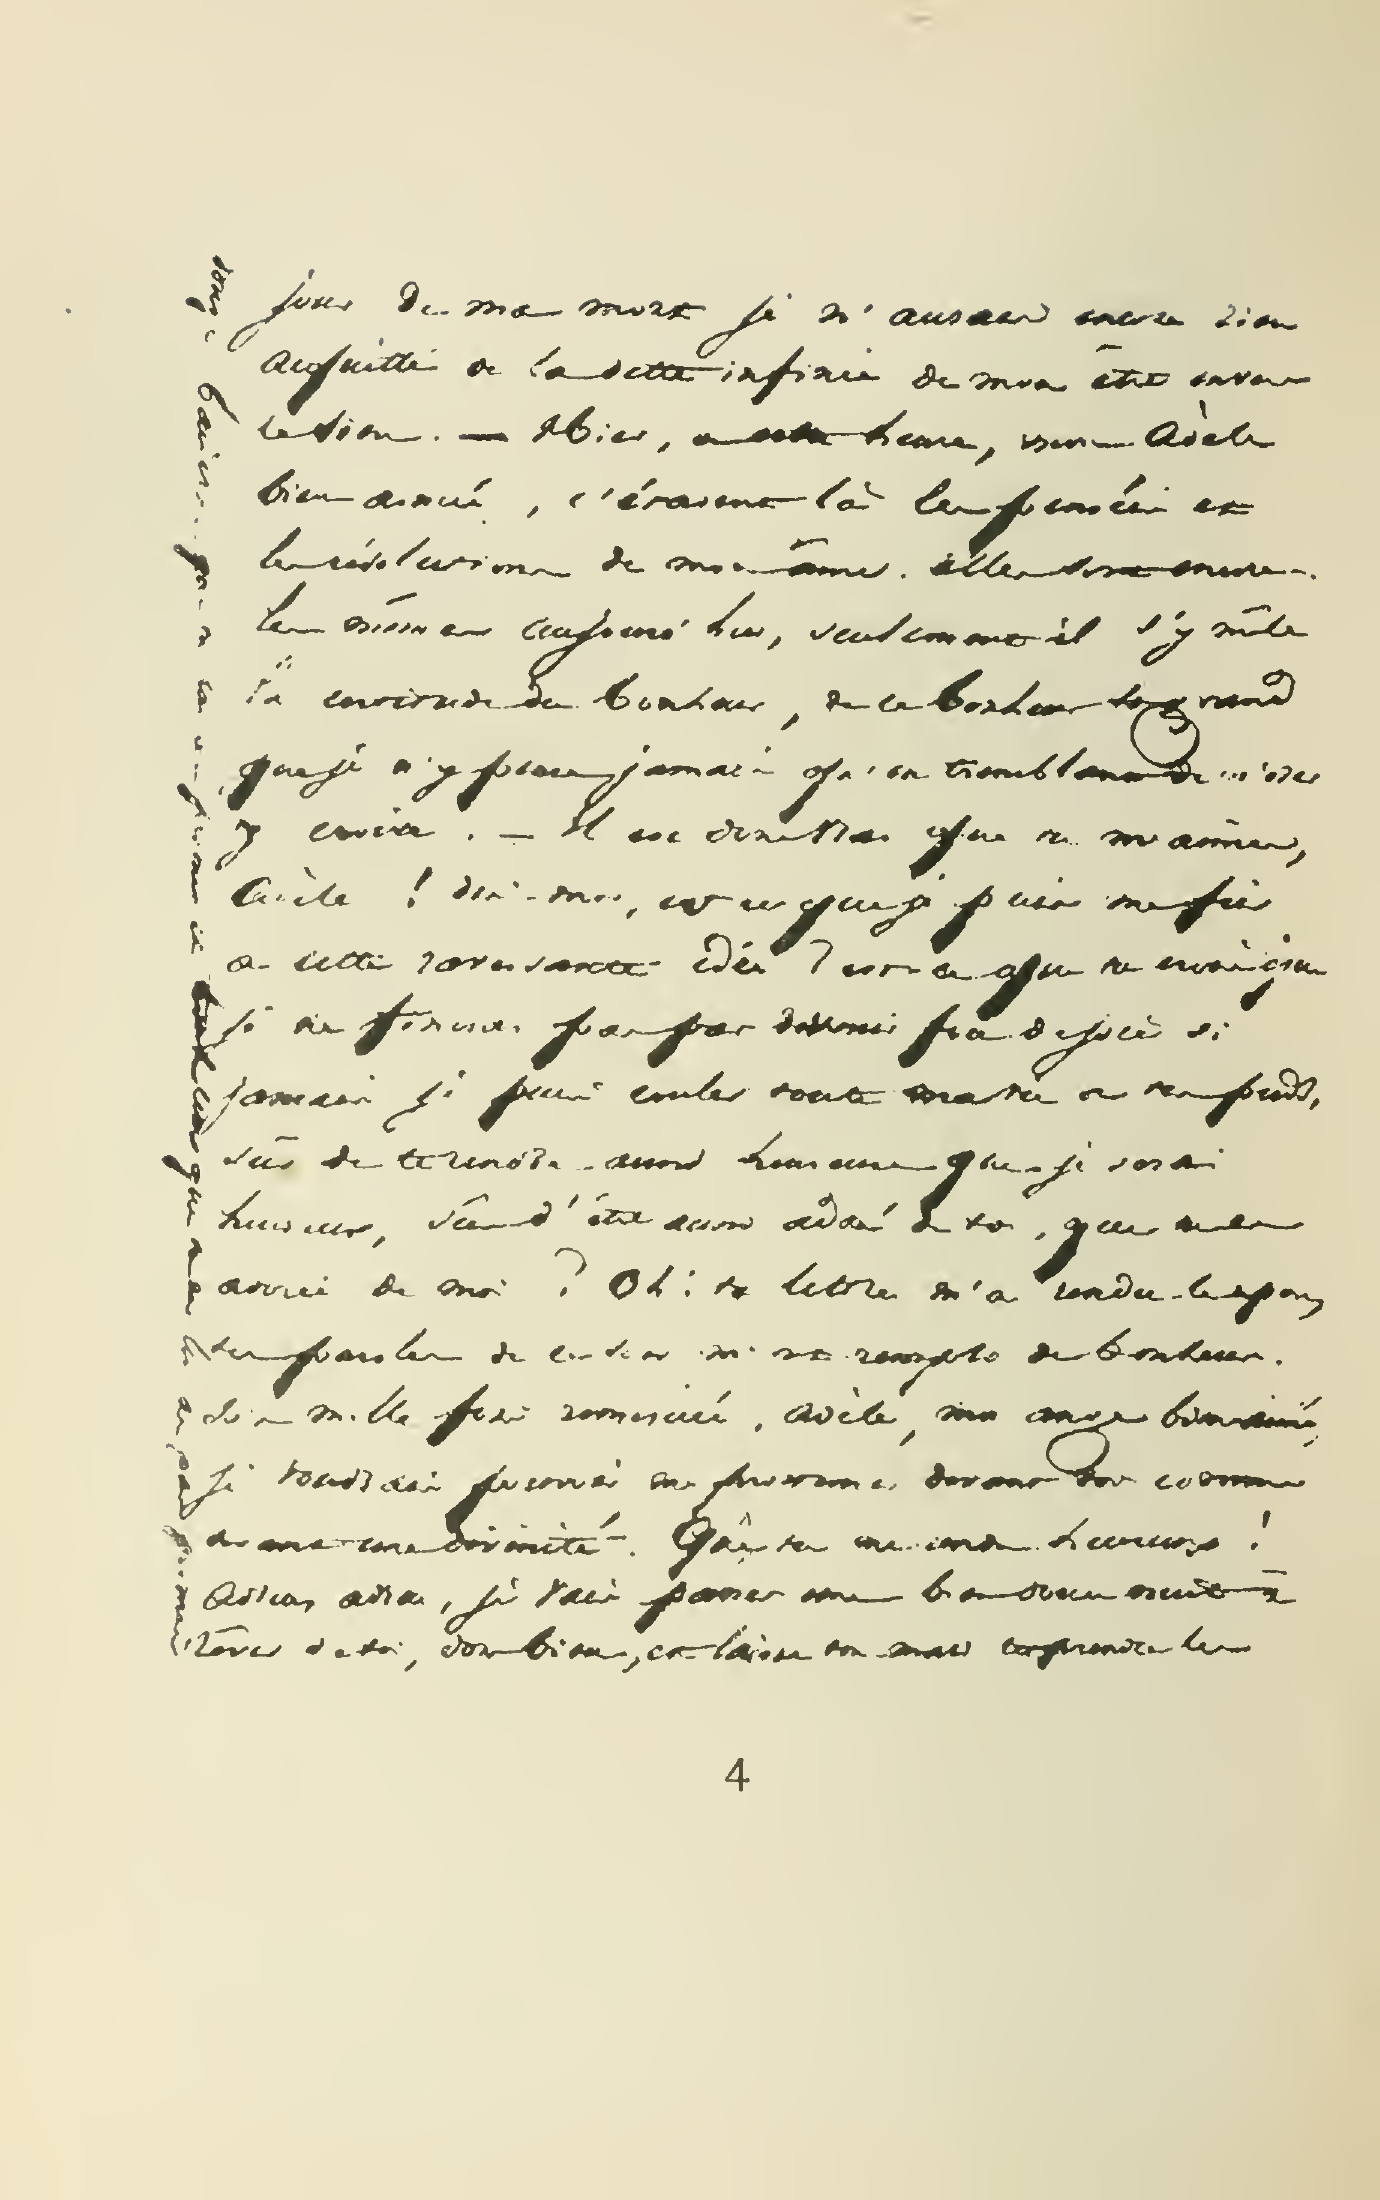 jour de ma mort je n'aurai encore rien
acquitté de la dette infinie de mon être envers
le tien. — Hier, à cette heure, mon Adèle
bien aimée, c'étaient là les pensées et
les résolutions de mon âme. elles sont encore
les mêmes aujourd'hui, seulement il s'y mêle
la certitude du bonheur, de ce bonheur si grand
que je n'y pense jamais qu'en tremblant de n'oser
y croire. — Il est donc vrai que tu m'aimes,
Adèle ! dis-moi, est-ce que je puis me fier
à cette ravissante idée ? est-ce que tu crois que
je ne finirai pas par devenir fou de joie si
jamais je puis couler toute ma vie à tes pieds,
sûr de te rendre aussi heureuse que je serai
heureux, sûr d'être aussi adoré de toi, que tu es
adorée de moi ? Oh ! ta lettre m'a rendu le repos,
tes paroles de ce soir m'ont rempli de bonheur.
sois mille fois remerciée, Adèle, mon ange bien-aimé,
je voudrais pouvoir me prosterner devant toi comme
devant une divinité. Que tu me rends heureux !
Adieu, adieu, je vais passer une bien douce nuit à
rêver de toi, dors bien, et laisse ton mari te prendre les
douze baisers que tu lui as promis et tous ceux que tu ne lui as pas promis